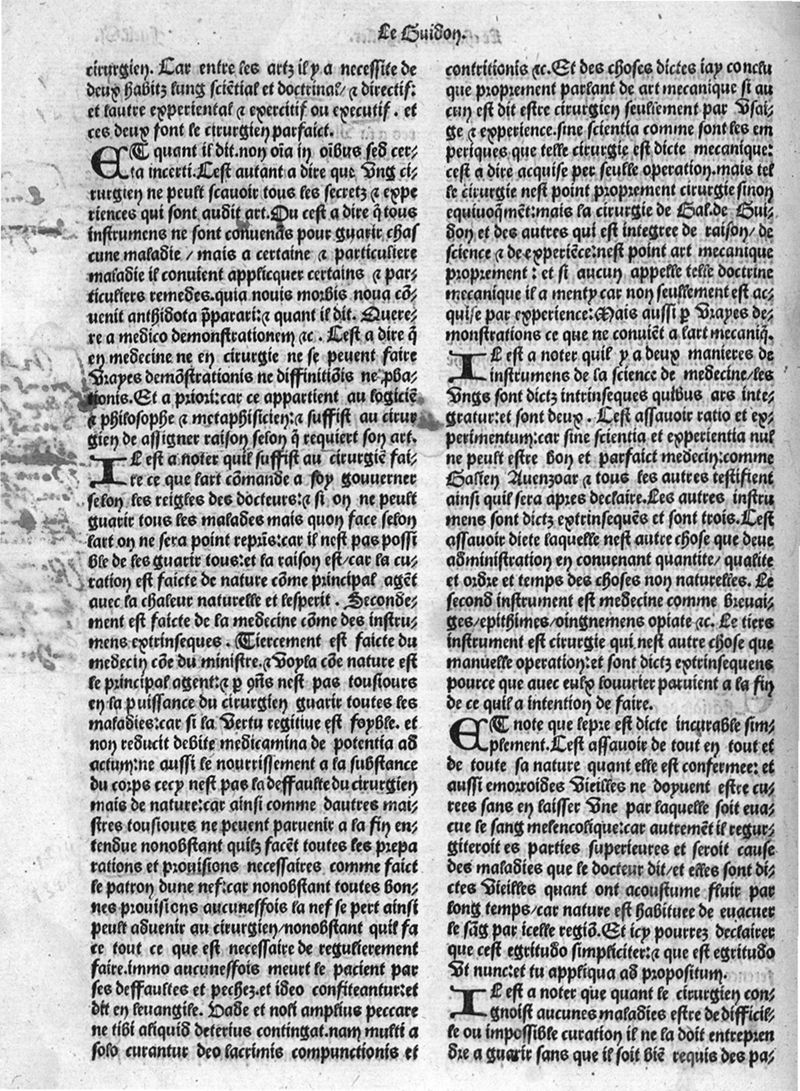 Le Guidon.
cirurgien. Car entre les artz il y a necessite de
deux habitz lung sciẽtial et doctrinal / & directif:
et lautre experiental & exercitif ou executif . et
ces deux font le cirurgien parfaict.
ET quant il dit. non oĩa in oĩbus sed cer-
ta incerti. Cest autant a dire que Vng ci-
rurgien ne peult scauoir tous les secretz & expe
riences qui sont audit art. Ou cest a dire q̃ tous
instrumens ne sont conuenãs pour guarir chas
cune maladie / mais a certaine & particuliere
maladie il conuient applicquer certains & par-
ticuliers remedes. quia nouis morbis noua cõ-
uenit anthidota p̃parari: & quant il dit. Quere-
re a medico demonstrationem &c. Cest a dire q̃
en medecine ne en cirurgie ne se peuent faire
Vrayes demõstrationis ne diffinitiõis ne p̱ba-
tionis. Et a priori: car ce appartient au logiciẽ
& philosophe & metaphisicien: & suffist au cirur
gien de assigner raison selon q̃ requiert son art.
IL est a noter quil suffist au cirurgiẽ fai-
re ce que lart cõmande a soy gouuerner
selon les reigles des docteurs: & si on ne peult
guarir tous les malades mais quon face selon
lart on ne sera point repris: car il nest pas possi
ble de les guarir tous: et la raison est / car la cu-
ration est faicte de nature cõme principal agẽt
auec la chaleur naturelle et lesperit . Seconde-
ment est faicte de la medecine cõme des instru-
mens extrinseques . Tiercement est faicte du
medecin cõe du ministre. & Voyla cõe nature est
le principal agent: & p̱ oñs nest pas tousiours
en la puissance du cirurgien guarir toutes les
maladies: car si la Vertu regitiue est foyble. et
non reducit debite medicamina de potentia ad
actum: ne aussi le nourrissement a la substance
du corps cecy nest pas la deffaulte du cirurgien
mais de nature: car ainsi comme dautres mai-
stres tousiours ne peuent paruenir a la fin en-
tendue nonobstant quilz facẽt toutes les prepa
rations et prouisions necessaires comme faict
le patron dune nef: car nonobstant toutes bon-
nes prouisions aucuneffois la nef se pert ainsi
peult aduenir au cirurgien / nonobstant quil fa
ce tout ce que est necessaire de regulierement
faire. immo aucuneffois meurt le pacient par
ses deffaultes et pechez. et ideo confiteantur: et
dit en leuangile. Vade et noli amplius peccare
ne tibi aliquid deterius contingat. nam multi a
solo curantur deo lacrimis compunctionis et
contritionis &c. Et des choses dictes iay conclu
que proprement parlant de art mecanique si au
cun est dit estre cirurgien seullement par Vsai-
ge & experience. sine scientia comme sont les em
periques que telle cirurgie est dicte mecanique:
cest a dire acquise per seulle operation. mais tel
le cirurgie nest point proprement cirurgie sinon
equiuoq̃mẽt: mais la cirurgie de Gal. de Gui-
don et des autres qui est integree de raison / de
science & de experiẽce: nest point art mecanique
proprement : et si aucun appelle telle doctrine
mecanique il a menty car non seullement est ac-
quise par experience: Mais aussi p̱ Vrayes de-
monstrations ce que ne conuiẽt a lart mecaniq̃.
IL est a noter quil y a deux manieres de
instrumens de la science de medecine / les
Vngs sont dictz intrinseques quibus ars inte-
gratur: et sont deux . Cest assauoir ratio et ex-
perimentum: car sine scientia et experientia nul
ne peult estre bon et parfaict medecin: comme
Galien Auenzoar & tous les autres testifient
ainsi quil sera apres declaire. Les autres instru
mens sont dictz extrinsequẽs et sont trois. Cest
assauoir diete laquelle nest autre chose que deue
administration en conuenant quantite / qualite
et ordre et temps des choses non naturelles. Le
second instrument est medecine comme breuai-
ges / epithimes / oingnemens opiate &c. Le tiers
instrument est cirurgie qui nest autre chose que
manuelle operation: et sont dictz extrinsequens
pource que auec eulx louurier paruient a la fin
de ce quil a intention de faire.
ET note que lepre est dicte incurable sim-
plement. Cest assauoir de tout en tout et
de toute sa nature quant elle est confermee: et
aussi emorroides Vieilles ne doyuent estre cu-
rees sans en laisser Vne par laquelle soit eua-
cue le sang melencolique: car autremẽt il regur-
giteroit es parties superieures et seroit cause
des maladies que le docteur dit / et elles sont di-
ctes Vieilles quant ont acoustume fluir par
long temps / car nature est habituee de euacuer
le sãg par icelle regiõ. Et icy pourrez declairer
que cest egritudo simpliciter: & que est egritudo
Vt nunc: et tu appliqua ad propositum.
IL est a noter que quant le cirurgien con-
gnoist aucunes maladies estre de difficil-
le ou impossible curation il ne la doit entrepren
dre a guarir sans que il soit biẽ requis des pa-